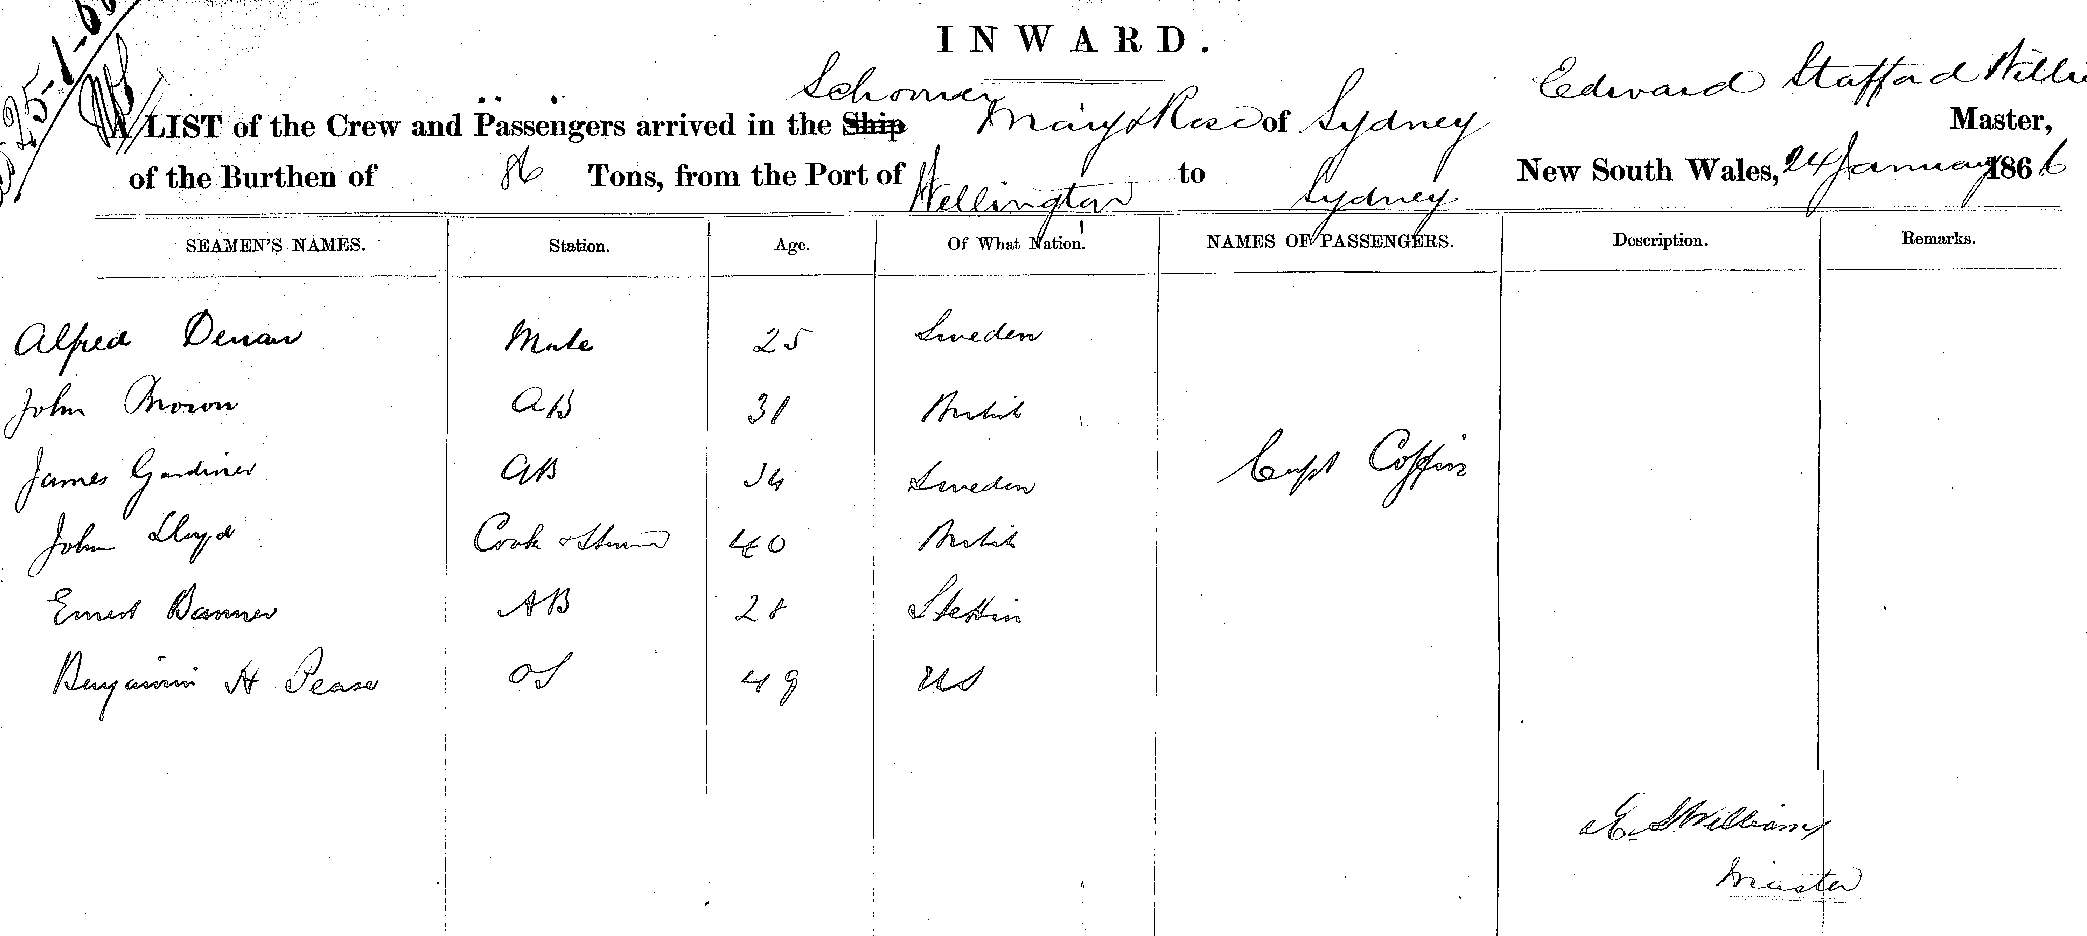 25-1-66
INWARD.
Schooner Edward Stafford Willi
A LIST of the Crew and Passengers arrived in the Ship Mary & Rose of Sydney Master,
of the Burthen of 86 Tons, from the Port of Wellington to Sydney New South Wales, 24 January 1866
SEAMEN'S NAMES. Station. Age. Of What Nation. NAMES OF PASSENGERS. Description. Remarks.
Alfred Mate 25 Sweden
John Brown AB 31 British
James Gardiner AB 34 Sweden
Capt Coffin
John Lloyd Cook & Steward 40 British
Ernest Banner AB 28 Stettin
Benjamin H Pease OS 49 US
E. S Williams
Master